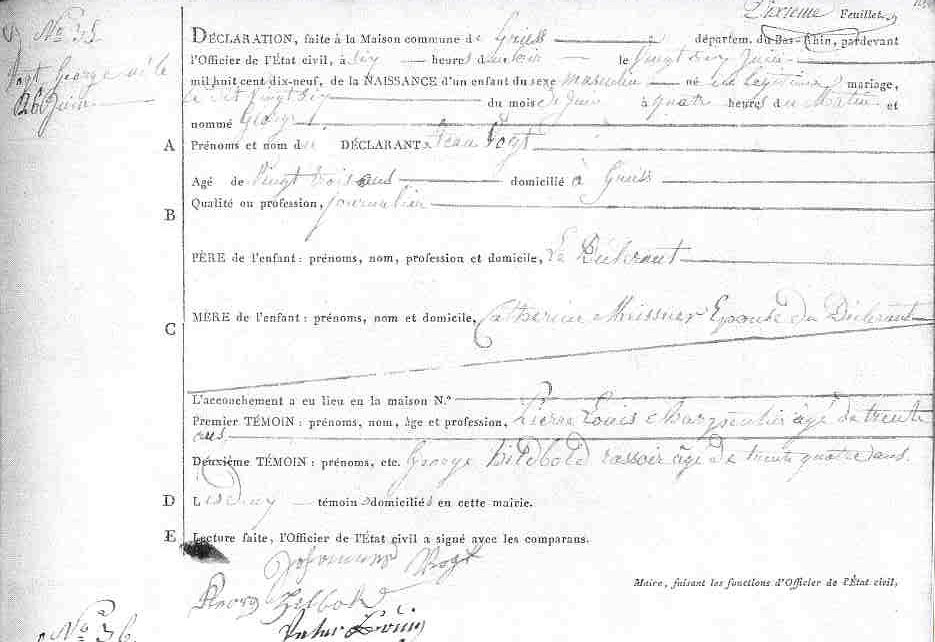 Dixième Feuillet
Nº 35
Vogt George né le
26 Juin
DÉCLARATION, faite à la Maison commune de Griess départem. du Bas-Rhin, pardevant
l'Officier de l'État civil, à six heures du le vingt six Juin
mil huit cent dix-neuf, de la NAISSANCE d'un enfant du sexe masculin né en légitime mariage,
le dit vingt six du mois de Juin à quatre heures du Matin et
nommé George
A Prénoms et nom du DÉCLARANT Jean Vogt
Agé de vingt trois ans domicilié à Griess
B Qualité ou profession, journalier
PÈRE de l'enfant : prénoms, nom, profession et domicile, Le Déclarant
C MÈRE de l'enfant : prénoms, nom et domicile, Catherine Meissner Epouse du Déclarant
L'accouchement a eu lieu en la maison N.º
Premier TÉMOIN : prénoms, nom, âge et profession, Pierre Louis Charpentier âgé de trente
ans.
Deuxième TÉMOIN : prénoms, etc. George Hildbold âgé de trente quatre ans.
D Lesdeux témoins domiciliés en cette mairie.
E Lecture faite, l'Officier de l'État civil a signé avec les comparans.
Johannes Vogt
Maire, faisant les fonctions d'Officier de l'État civil,
Nº 36.